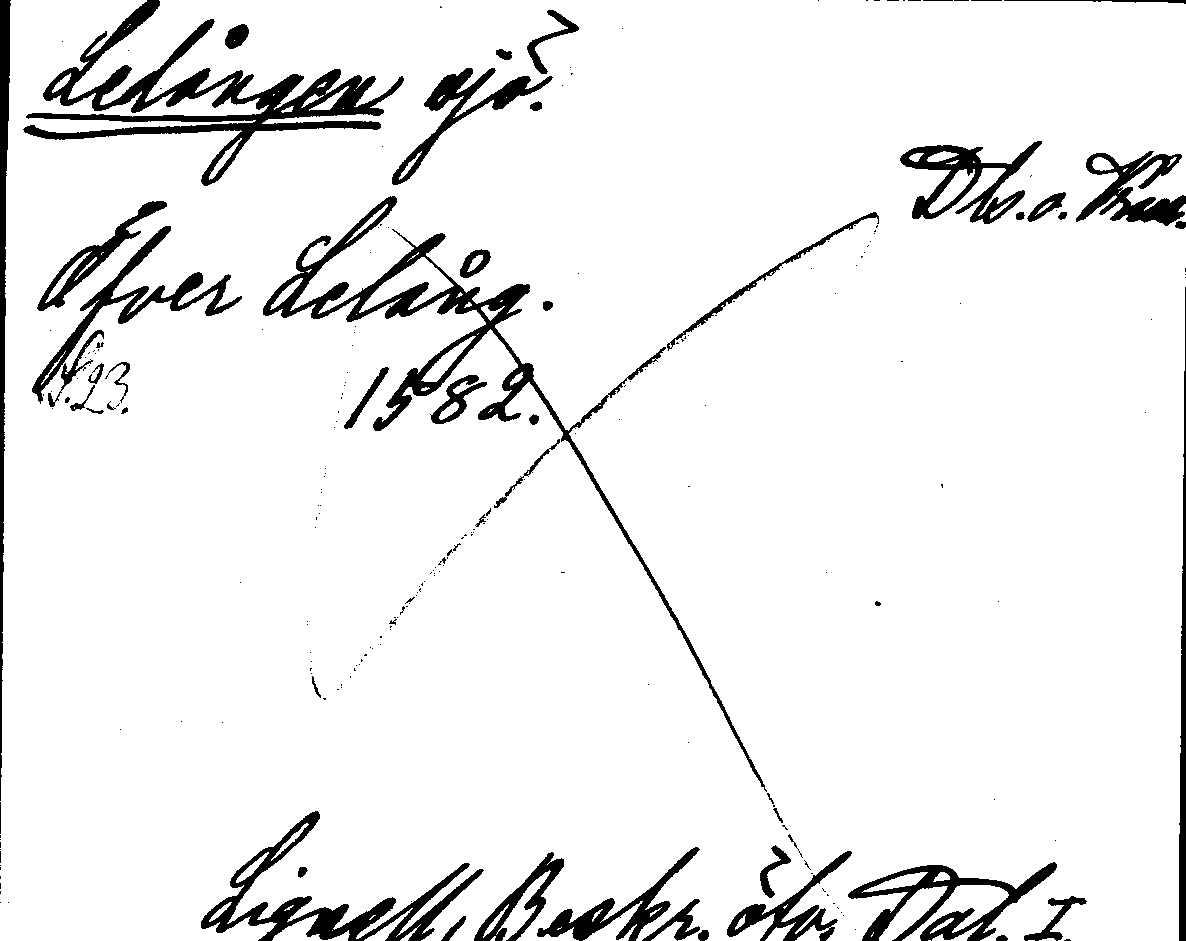 Lelången sjö.
Dls. o. Vrml.
Öfver Lelång.
S. 23.
1582.
Lignell, Beskr. öfv. Dal. I.